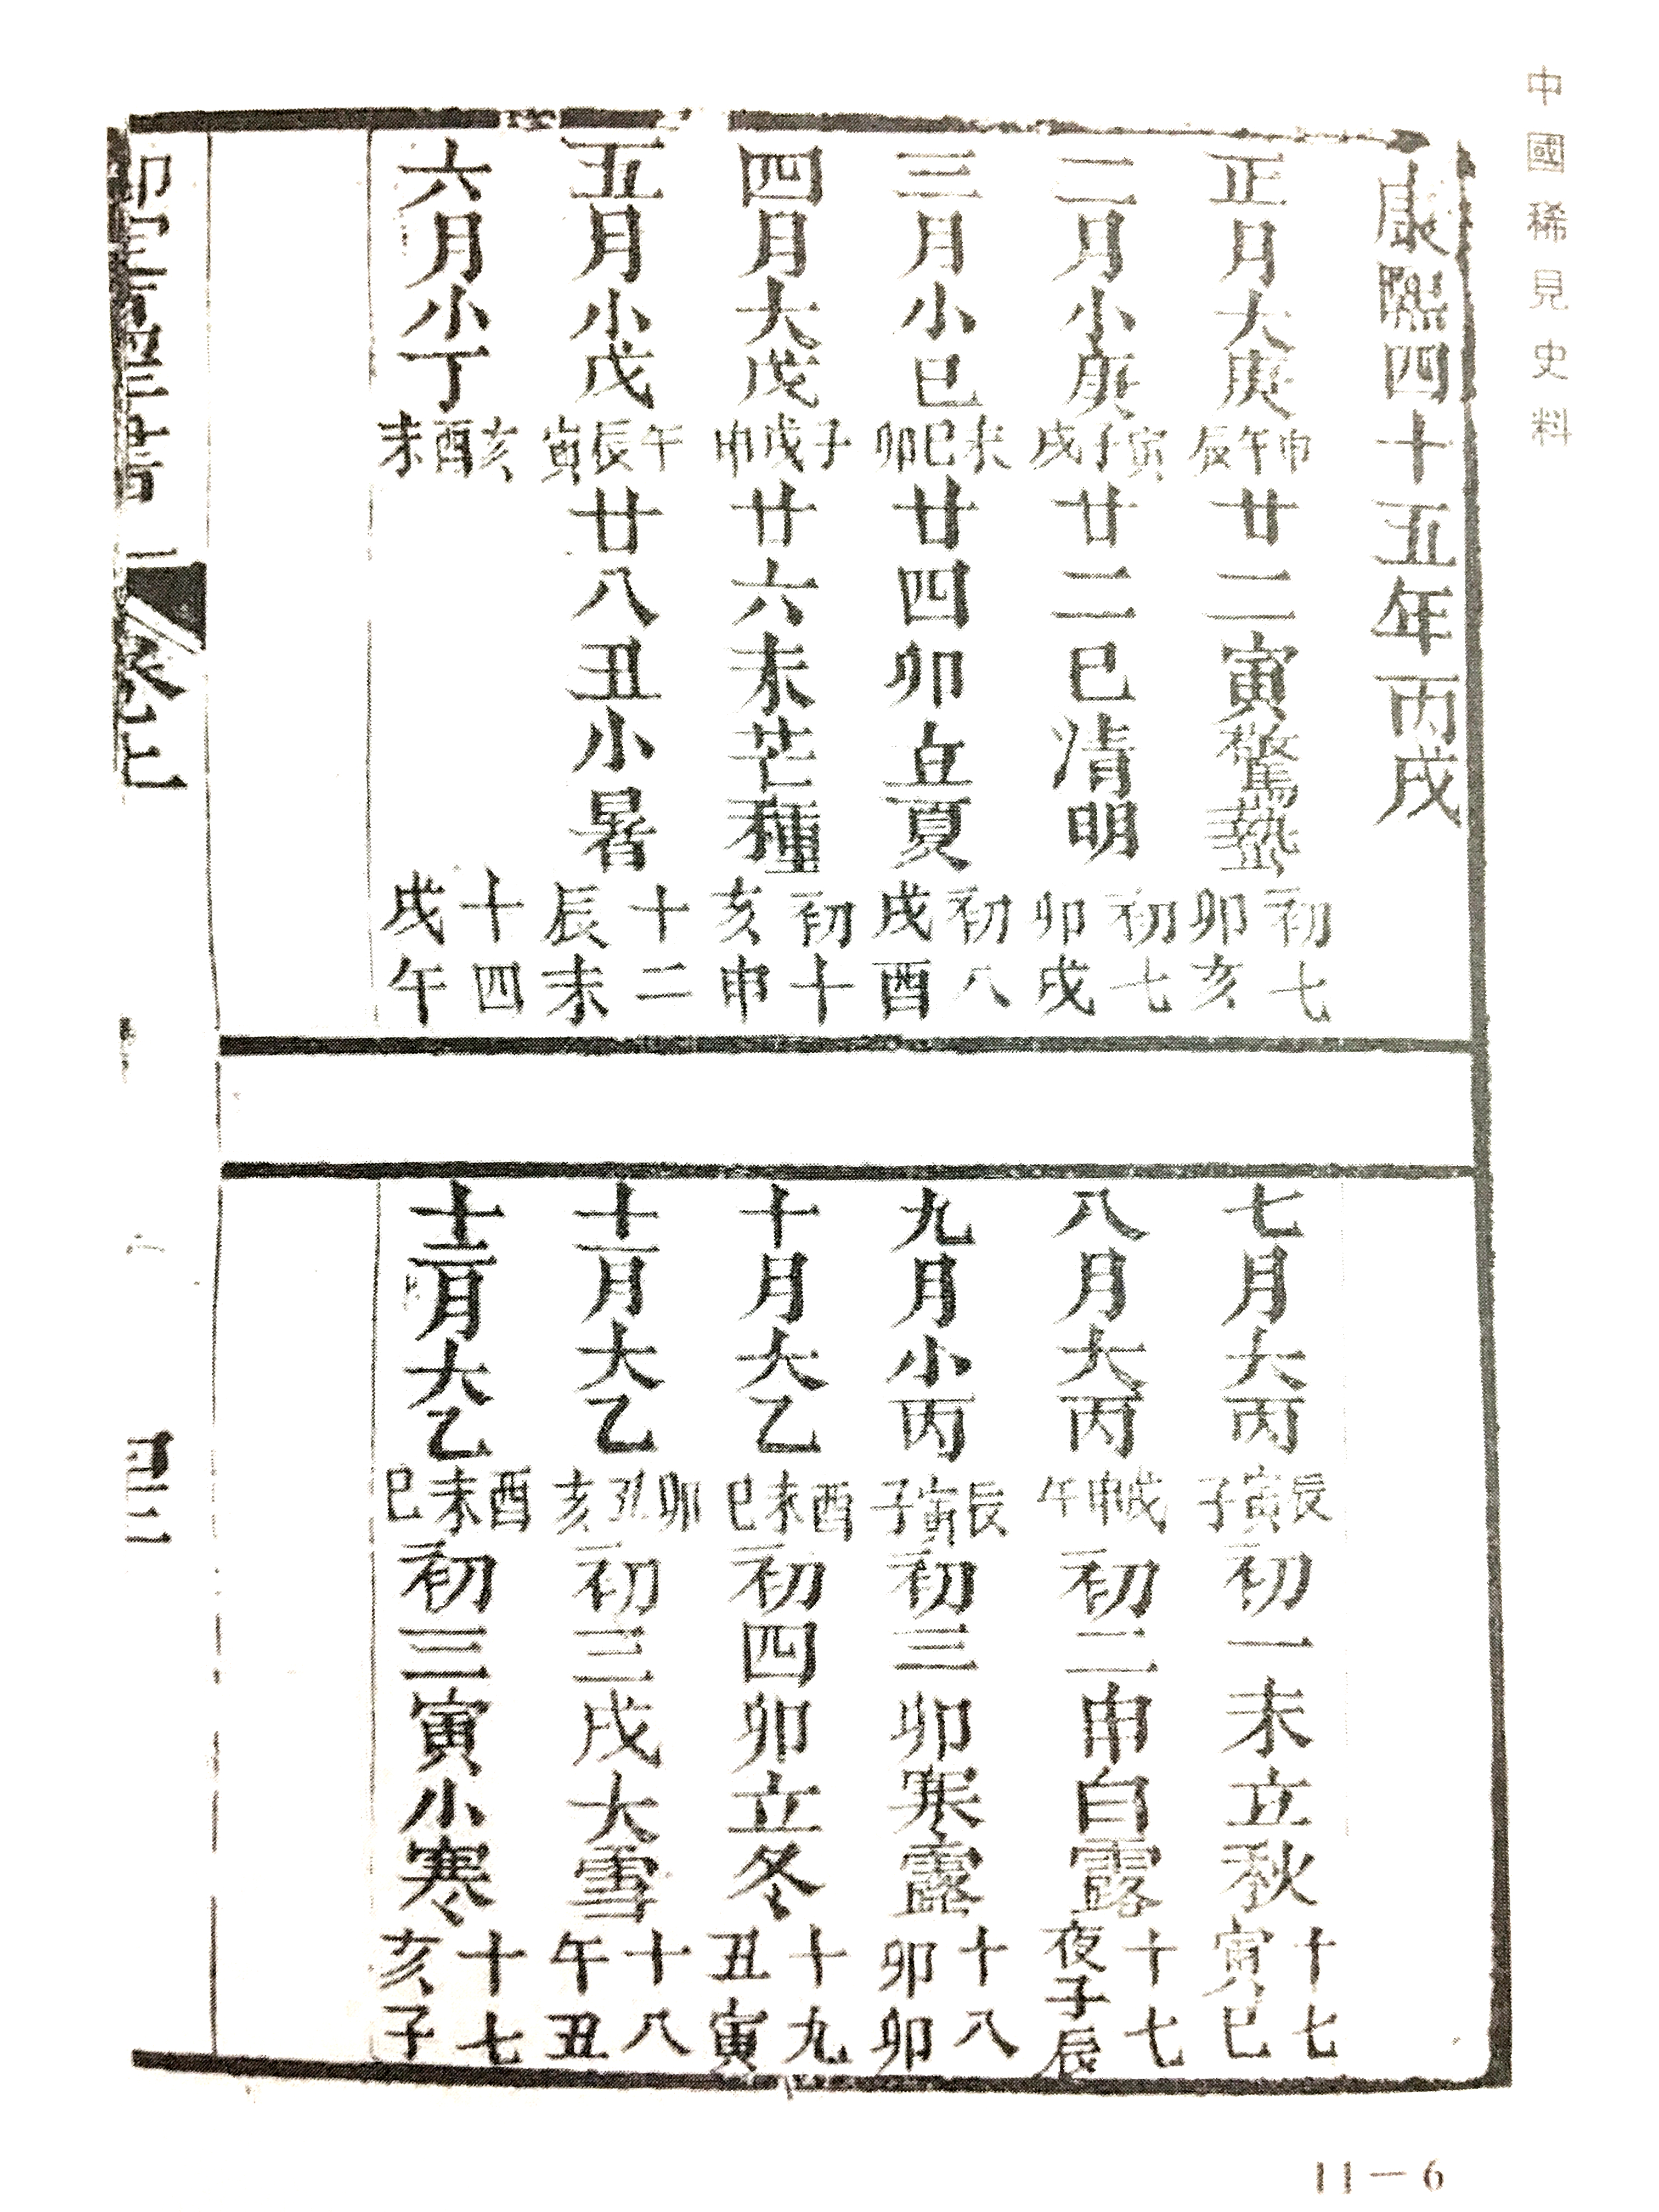 中國稀見史料
康熙四十五年丙戌
正月大庚 申午辰 廿二寅驚蟄 初七 卯亥
二月小庚 寅子戌 廿二巳清明 初七 卯戌
三月小巳 未巳卯 廿四卯立夏 初八 戌酉
四月大戊 子戌申 廿六未芒種 初十 亥申
五月小戊 午辰寅 廿八丑小暑 十二 辰未
六月小丁 亥酉未 十四 戌午
七月大丙 辰寅子 初一未立秋 十七 寅巳
八月大丙 戌申午 初二申白露 十七 夜子辰
九月小丙 辰寅子 初三卯寒露 十八 卯卯
十月大乙 酉未巳 初四卯立冬 十九 丑寅
十一月大乙 卯丑亥 初三戌大雪 十八 午丑
十二月大乙 酉未巳 初三寅小寒 十七 亥子
11－6